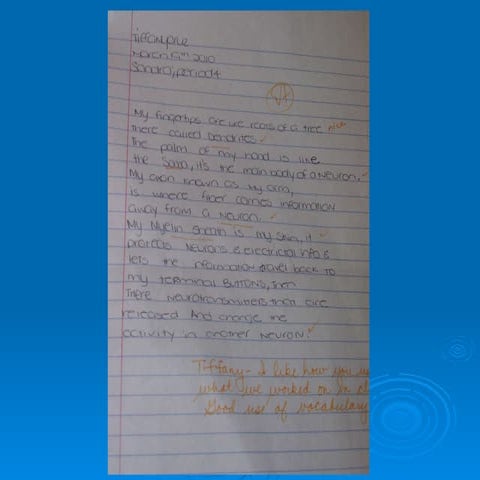 Tiffany Due
March 15th 2010
Sandra, period 4
My fingertips are like roots of a tree nice
there called dendrites.
The palm of my hand is like
the Soma, it's the main body of a Neuron.
My axon known as My arm,
is where fiber carries information
away from a Neuron.
My Myelin Sheath is my skin, it
protects Neurons & electrical info &
lets the information travel back to
my TERMINAL BUTTONS, then
There Neurotransmitters that are
released And change the
activity in another Neuron.
Tiffany - I like how you
what we worked on in cl
Good use of vocabulary